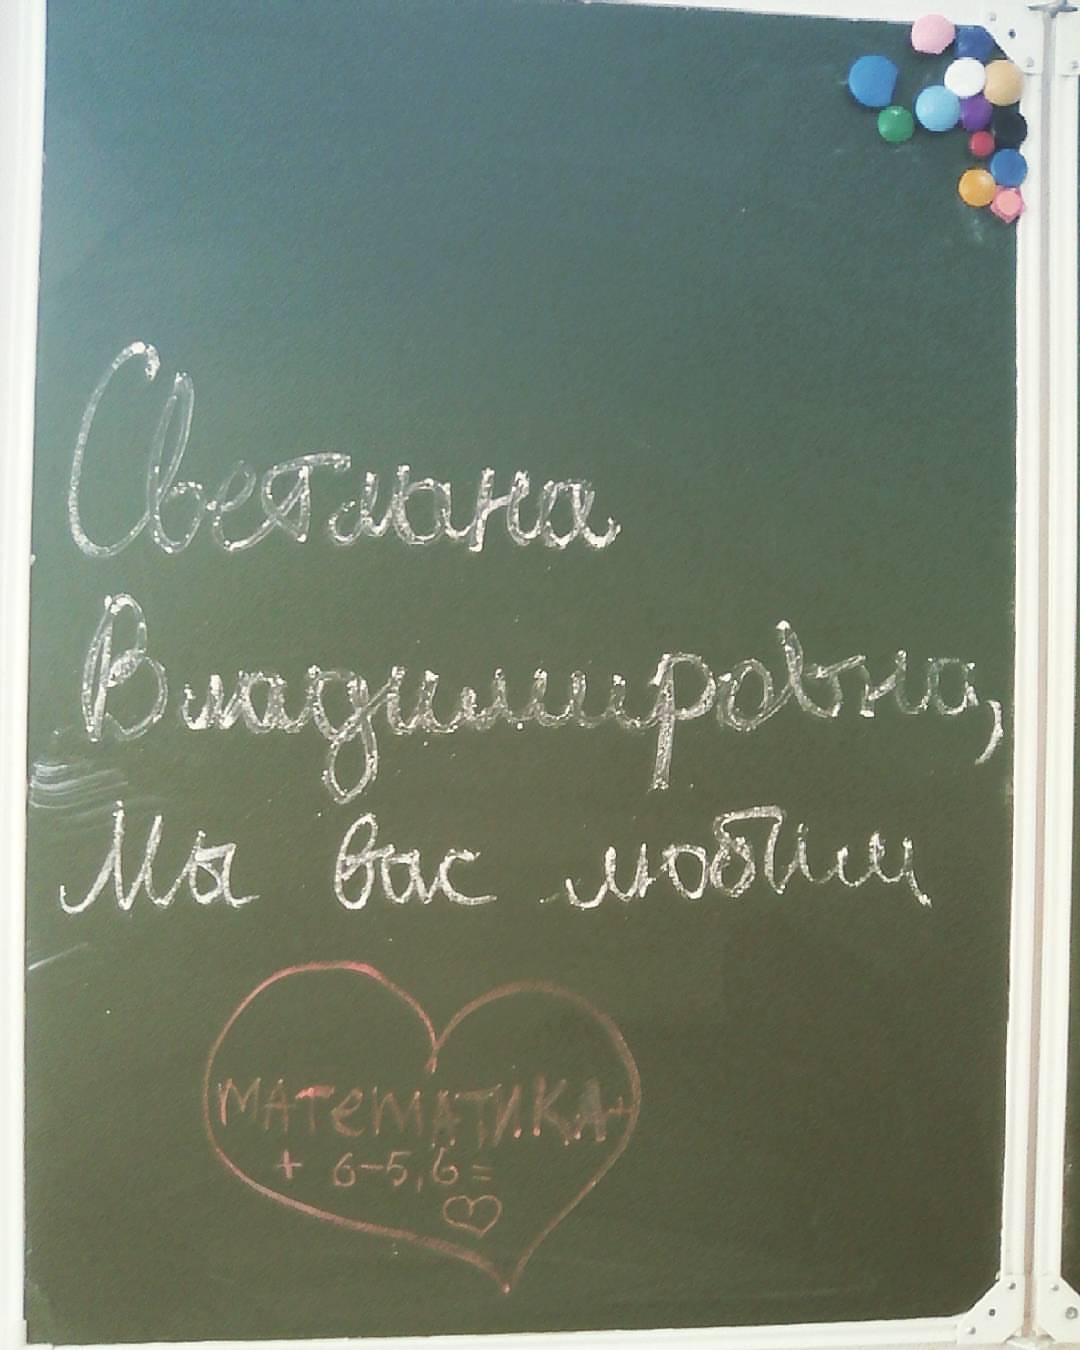 Светлана
Владимировна,
Мы вас любим
МАТЕМАТИКА+
+ 6-5,6=